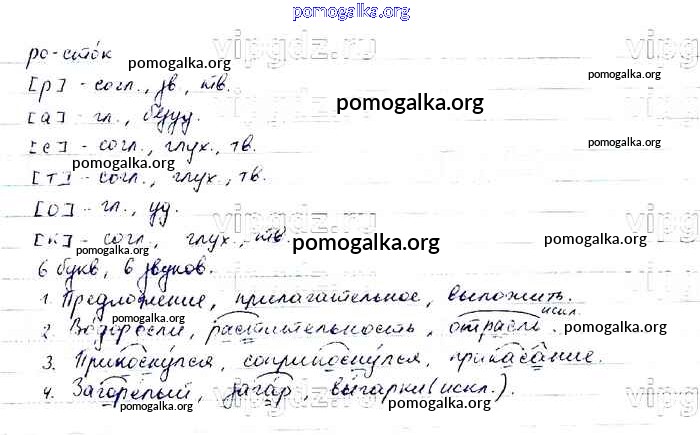 pomogalka.org
vipgdz.ru
vipgdz.ru
ро-сто́к
pomogalka.org
[р] - согл., зв, тв.
pomogalka.org
pomogalka.org
[а] - гл., безуд.
pomogalka.org
[с] - согл., глух., тв.
pomogalka.org
pomogalka.org
[т] - согл., глух., тв.
[о] - гл., уд.
vipgdz.ru
vipgdz.ru
[к] - согл, глух., тв.
pomogalka.org
pomogalka.org
pomogalka.org
6 букв, 6 звуков.
1. Предложение, прилагательное, выложить.
2. Водоросли, растительность, отрасли искл.
pomogalka.org
pomogalka.org
3. Прикоснулся, соприкоснулся, прикасание.
4. Загорелый, загар, выгарки (искл.).
vipgdz.ru
vipgdz.ru
pomogalka.org
pomogalka.org
pomogalka.org